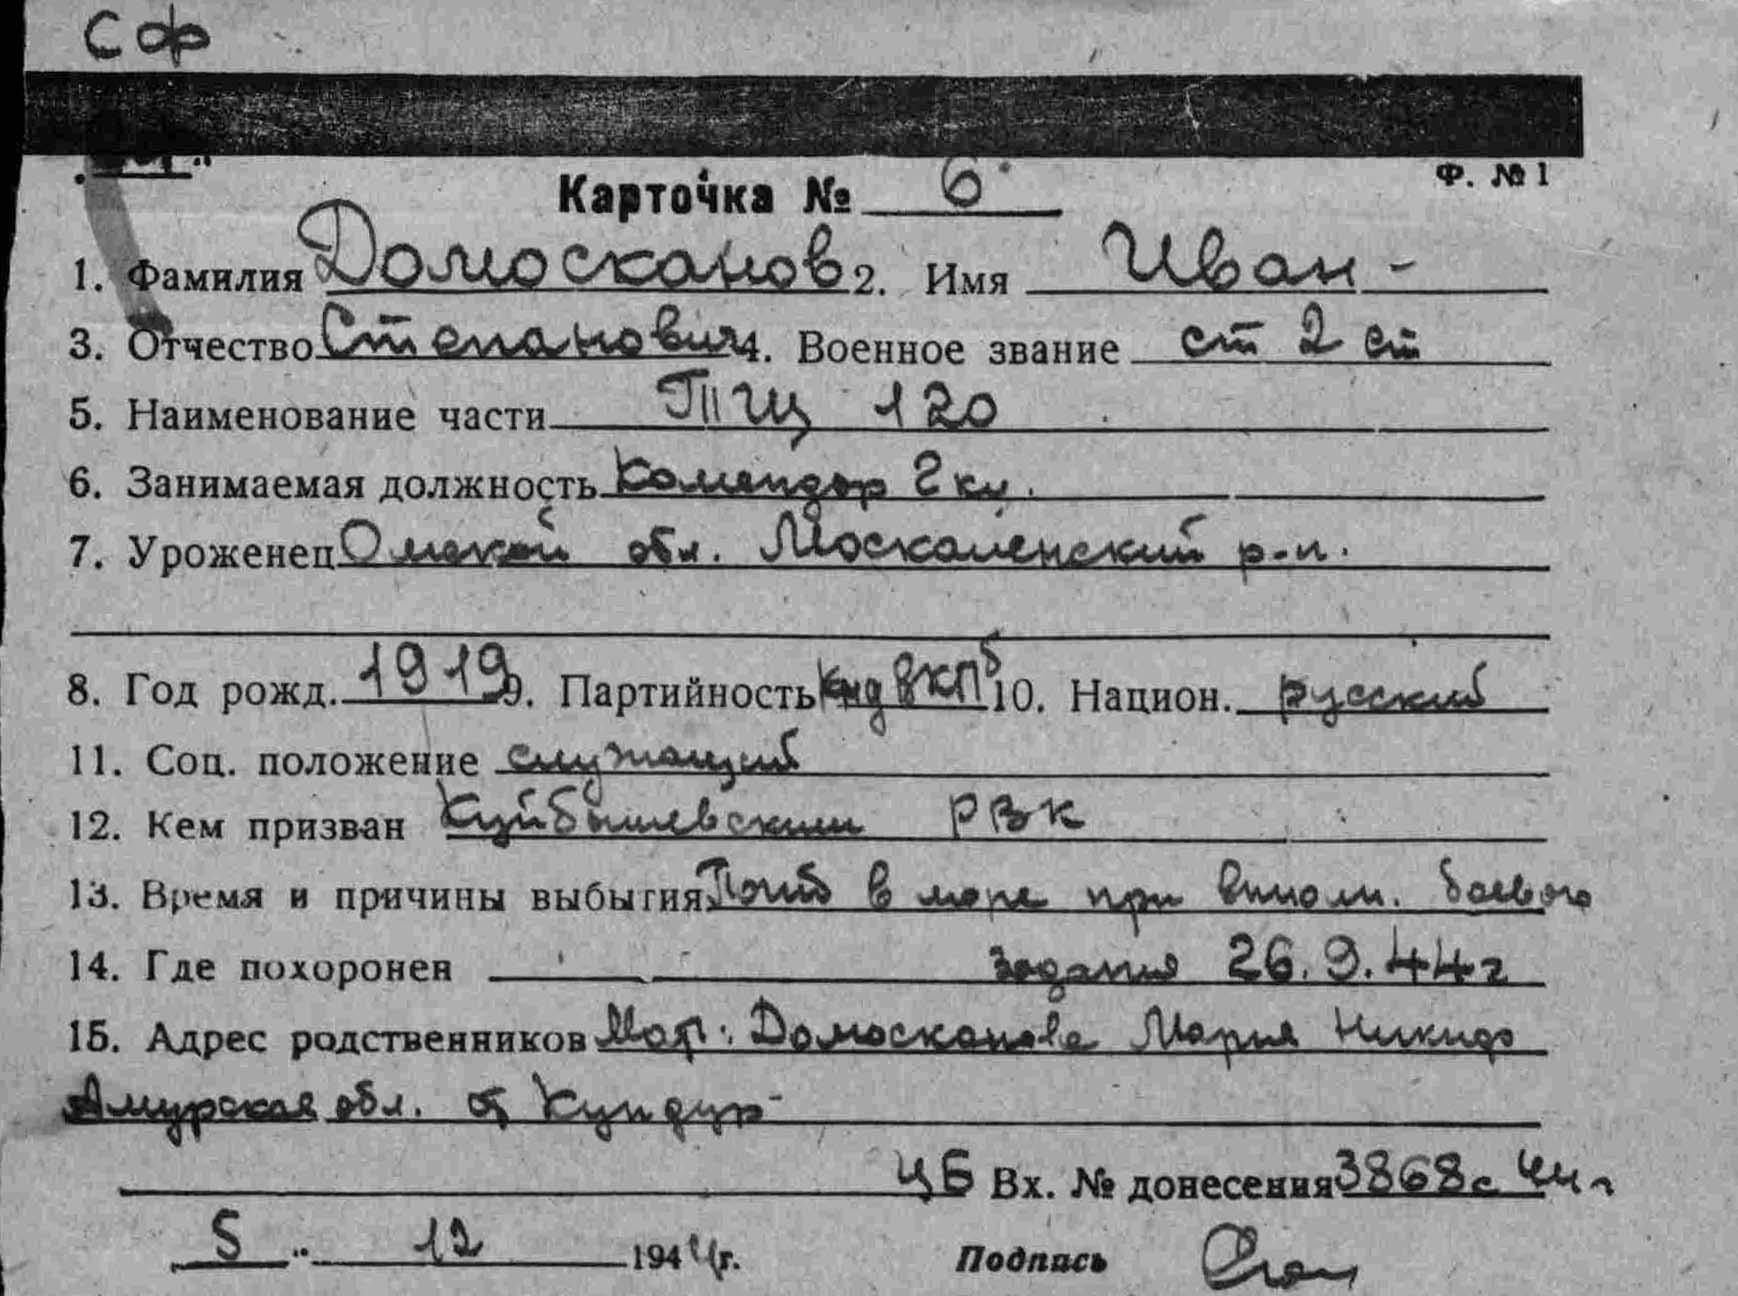 СФ
Ф. № 1
Карточка № 6
1. Фамилия Домосканов 2. Имя Иван -
3. Отчество Степанович 4. Военное звание ст 2 ст
5. Наименование части ТЩ 120
6. Занимаемая должность Комендор 2 кл.
7. Уроженец Омской обл. Москаленский р-н.
8. Год рожд. 1919 9. Партийность Кнд ВКПб 10. Национ. русский
11. Соц. положение служащий
12. Кем призван Куйбышевским РВК
13. Время и причины выбытия Погиб в море при выполн. боевого
14. Где похоронен задания 26.9.44г
15. Адрес родственников Мать: Домосканова Мария Никиф
Амурская обл. ст Кундур
ЦБ Вх. № донесения 3868с 44г
5 " 12 1944г. Подпись